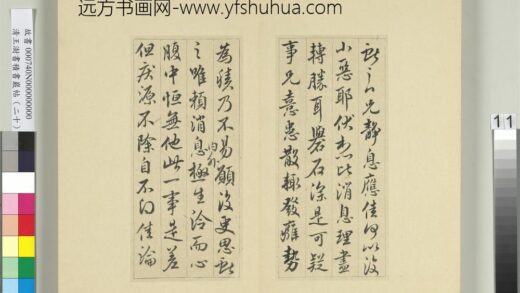 远方书画网-www.yfshuhua.com
獻之白兄靜息應佳何以復
小惡耶伏想比消息理盡
轉勝耳礜石深是可疑
事兄憙患散輒發癰勢
為積乃不易願復更思獻
之唯賴消息內外極生冷而心
腹中恒無他此一事是差
但疾源不除自不得佳論
故書 000740N000000000
清王澍書積書巖帖(二十)
11